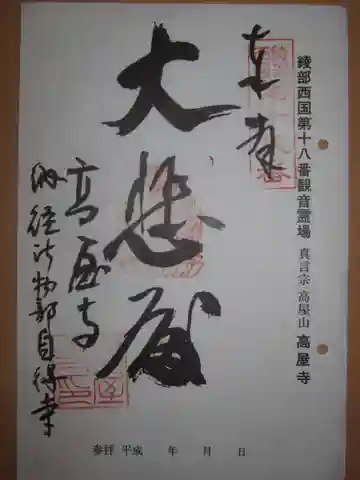 綾部西国第十八番観音霊場 真言宗 高屋山 高屋寺
奉拝
大悲殿
高屋寺
納経所物部自得寺
参拝 平成 年 月 日